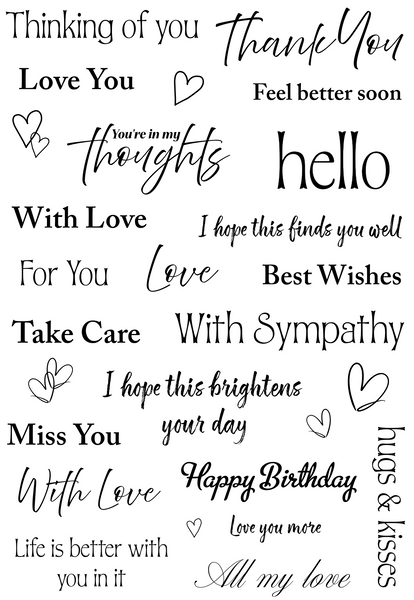 Thinking of you
Thank You
Love You
Feel better soon
You're in my
thoughts
hello
With Love
I hope this finds you well
For You
Love
Best Wishes
Take Care
With Sympathy
I hope this brightens
your day
Miss You
hugs & kisses
With Love
Happy Birthday
Love you more
Life is better with
you in it
All my love